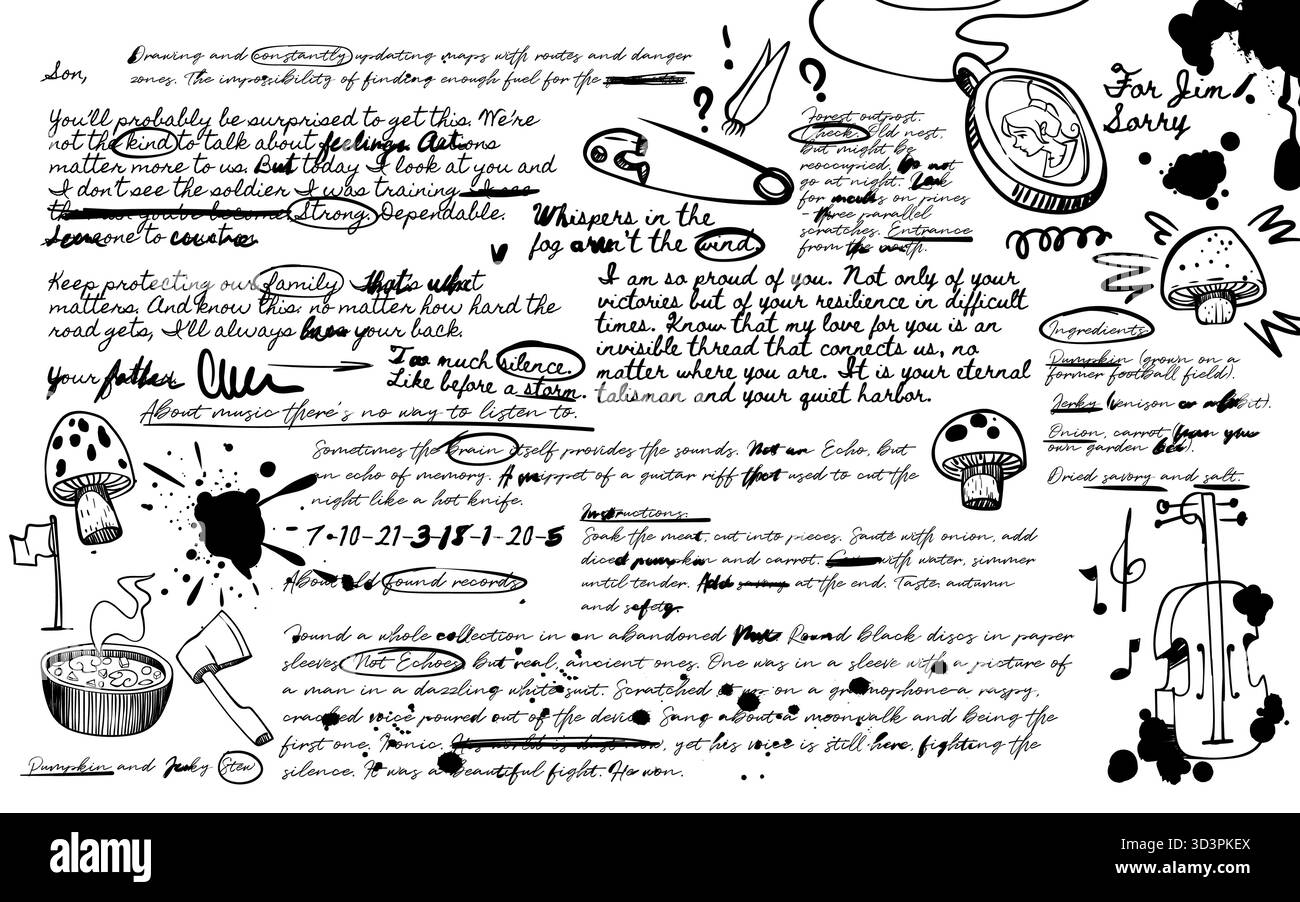 Drawing and constantly updating maps with routes and danger
zones. The impossibility of finding enough fuel for the
Son,
You'll probably be surprised to get this. We're
not the kind to talk about feelings. Actions
matter more to us. But today I look at you and
I don't see the soldier I was training. I see
you've become. Strong. Dependable.
Someone to
Keep protecting our family. that's what
matters. And know this: no matter how hard the
road gets, I'll always have your back.
Your father
Too much silence.
Like before a storm.
Whispers in the
fog aren't the wind.
Forest outpost.
Check. Old nest,
but might be
reoccupied. Do not
go at night. Look
for marks on pines
- three parallel
scratches. Entrance
from the north.
For Jim!
Sorry
I am so proud of you. Not only of your
victories but of your resilience in difficult
times. Know that my love for you is an
invisible thread that connects us, no
matter where you are. It is your eternal
talisman and your quiet harbor.
Ingredients
Pumpkin (grown on a
former football field).
Jerky (venison or rabbit).
Onion, carrot (from your
own garden bed).
Dried savory and salt.
About music there's no way to listen to.
Sometimes the brain itself provides the sounds. Not an Echo, but
an echo of memory. A snippet of a guitar riff that used to cut the
night like a hot knife.
- 7-10-21-3-18-1-20-5
Instructions.
Soak the meat, cut into pieces. Sauté with onion, add
diced pumpkin and carrot. with water, simmer
until tender. Add savory at the end. Taste, autumn
and safety.
About old found records
Found a whole collection in an abandoned Round black discs in paper
sleeves. Not Echoes, but real, ancient ones. One was in a sleeve with a picture of
a man in a dazzling white suit. Scratched it up on a gramophone-a raspy,
cracked voice poured out of the device. Sang about a moonwalk and being the
first one. Ironic. His world is dust now, yet his voice is still here, fighting the
silence. It was a beautiful fight. He won.
Pumpkin and Jerky Stew
alamy
Image ID: 3D3PKEX
www.alamy.com